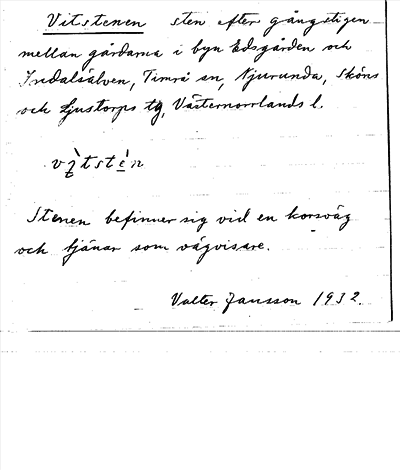 Vitstenen sten efter gångstigen
mellan gårdarna i byn Edsgården och
Indalsälven, Timrå sn, Njurunda, Sköns
och Ljustorps tg, Västernorrlands l.
Stenen befinner sig vid en korsväg
och tjänar som vägvisare.
Valter Jansson 1932.